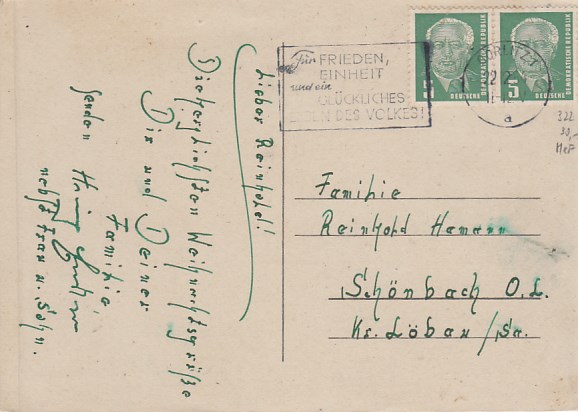 Lieber Reinhold!
Die herzlichsten Weihnachtsgrüße
Dir und Deiner
Familie,
senden
nebst Frau u. Sohn.
für FRIEDEN,
EINHEIT
und ein
GLÜCKLICHES
LEBEN DES VOLKES!
5
DEUTSCHE
DEMOKRATISCHE REPUBLIK
5
DEUTSCHE
DEMOKRATISCHE REPUBLIK
a
322
30,-
MeF
Familie
Reinhold Hamann
Schönbach O.L.
Kr. Löbau /Sa.